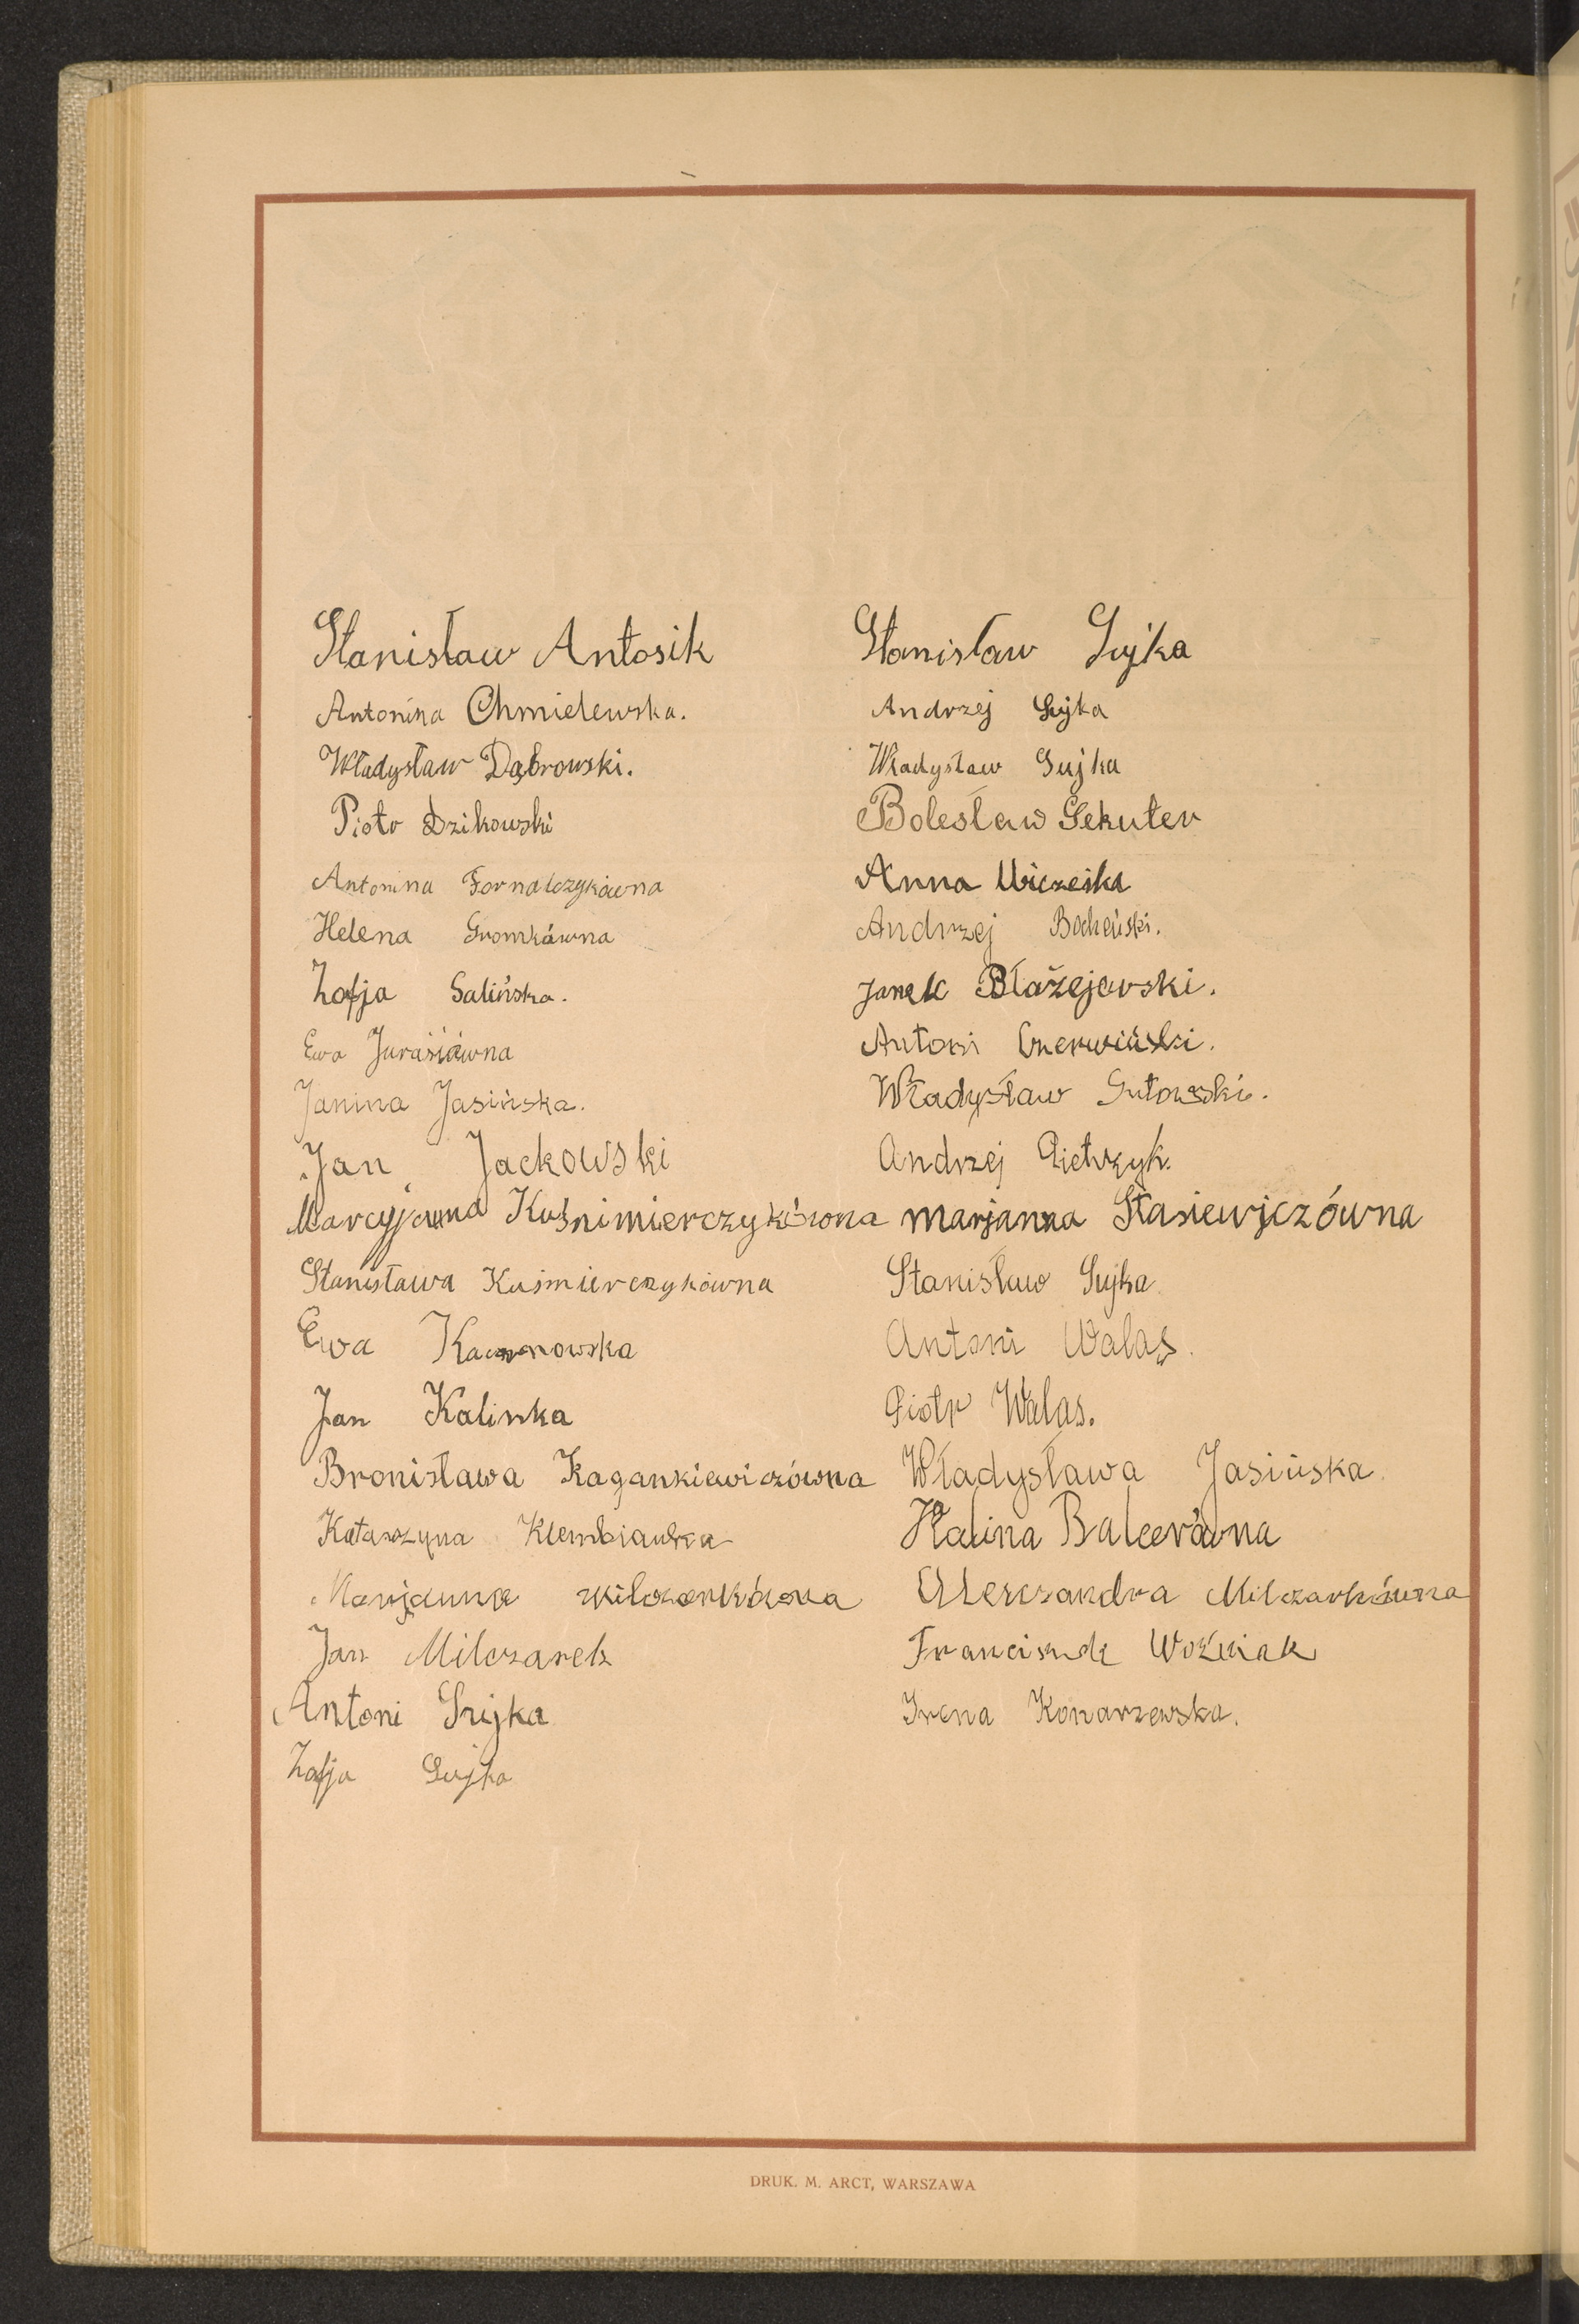 Stanisław Antosik
Antonina Chmielewska.
Władysław Dąbrowski.
Piotr Dzikowski
Antonina Fornalczykówna
Helena Gromkówna
Zofja Salińska.
Ewa Jurasiówna
Janina Jasińska.
Jan Jackowski
Marcyjanna Kuśnimierczykówna
Stanisława Kuśmierczykówna
Ewa
Jan Kalinka
Bronisława Kagankiewiczówna
Katarzyna
Marjanna Milczarkówna
Jan Milczarek
Antoni Sujka
Zofja Sujka
Stanisław Sujka
Andrzej Sujka
Władysław Sujka
Bolesław Sekuter
Anna
Andrzej Bocheński.
Janek Błażejewski.
Antoni Czerwiński.
Władysław Gutowski.
Andrzej Pietrzyk.
Marjanna Stasiewiczówna
Stanisław Sujka
Antoni Walas.
Piotr Walas.
Władysława Jasińska.
Halina Balcerówna
Alerczandra Milczarkówna
Woźniak
Irena Konarzewska.
DRUK. M. ARCT, WARSZAWA